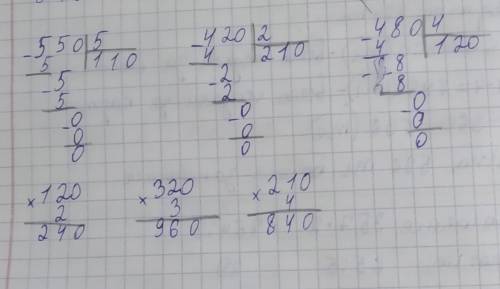 -550|5
5 110
-5
5
-0
0
0
-420|2
4 210
-2
2
-0
0
0
-480|4
4 120
-8
8
-0
0
0
×120
2
240
×320
3
960
×210
4
840